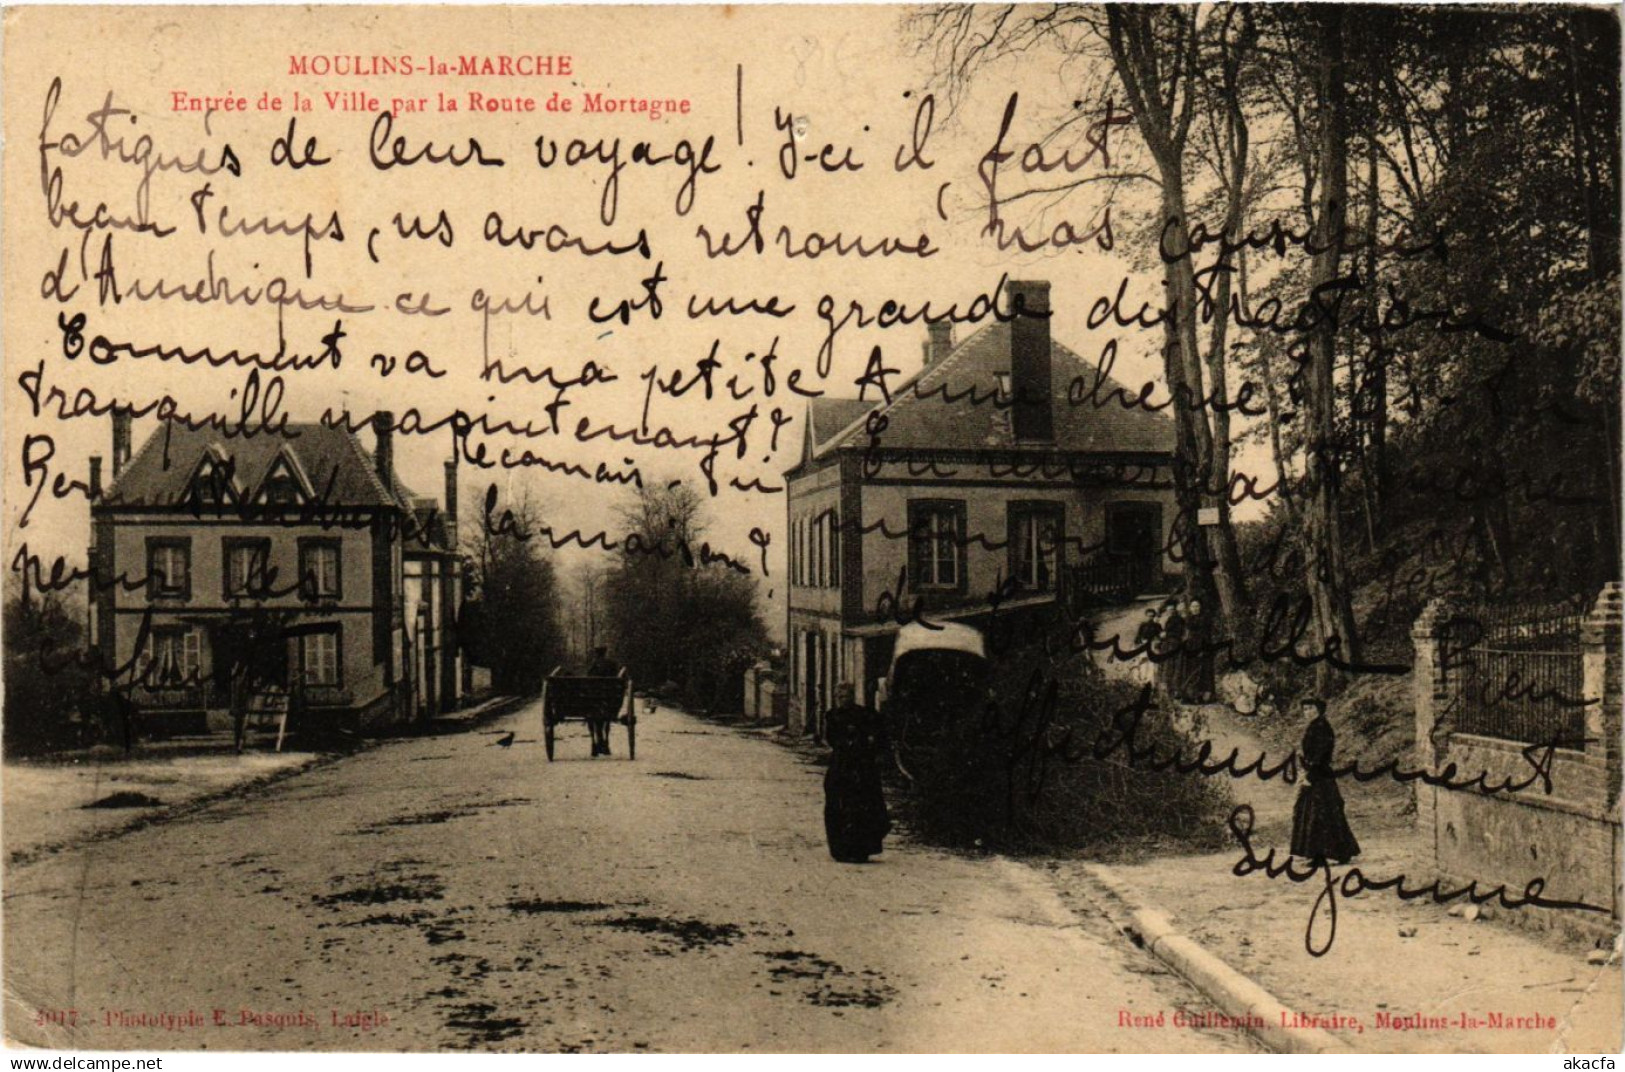 MOULINS-la-MARCHE
Entrée de la Ville par la Route de Mortagne
fatigués de leur voyage! I-ci il fait
beau temps, ns avons retrouvé nos cousines
d'Amérique ce qui est une grande distraction
Comment va ma petite Anne chérie? Es-tu
tranquille maintenant?
Reconnais-tu
la maison?
En remerciant
pour les
enfants
de
Bien
affectueusement
Suzanne
4017 - Phototypie E. Pasquis, Laigle
René Guillemin, Libraire, Moulins-la-Marche
akacfa